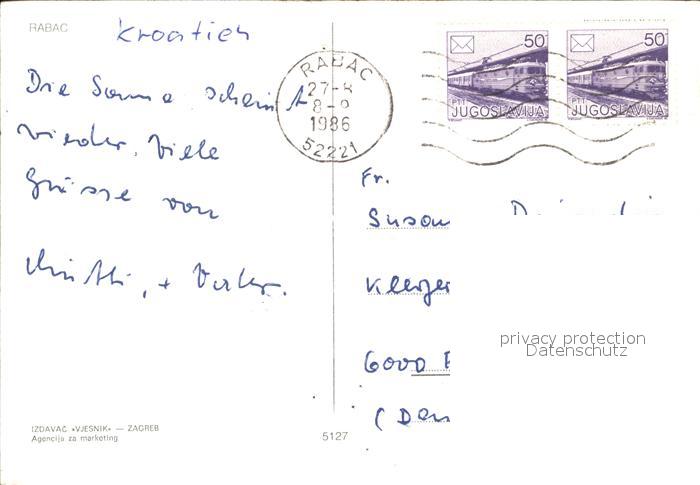 RABAC
Kroatien
Die Sonne scheint
wieder. Viele
Grüsse von
+
RABAC
27-8
1986
52221
50
PTT
JUGOSLAVIJA
50
PTT
JUGOSLAVIJA
Fr.
Susan
6000 F
privacy protection
Datenschutz
IZDAVAČ «VJESNIK» — ZAGREB
Agencija za marketing
5127